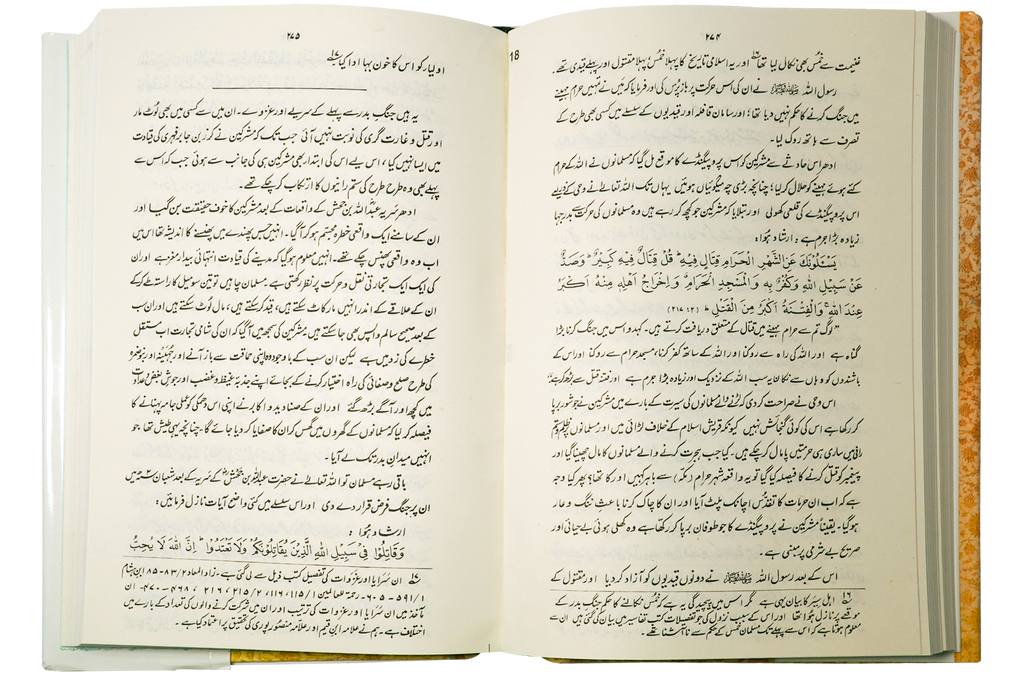 ۲۷۴
غنیمت سے خُمس بھی نکال لیا تھا۱۶ اور یہ اسلامی تاریخ کا پہلا خُمس پہلا مقتول اور پہلے قیدی تھے۔
رسول اللہ ﷺ نے ان کی اس حرکت پر باز پرس کی اور فرمایا کہ میں نے تمہیں حرام مہینے
میں جنگ کرنے کا حکم نہیں دیا تھا؛ اور سامان قافلہ اور قیدیوں کے سلسلے میں کسی بھی طرح کے
تصرف سے ہاتھ روک لیا۔
ادھر اس حادثے سے مشرکین کو اس پروپیگنڈے کا موقع مل گیا کہ مسلمانوں نے اللہ کے حرام
کئے ہوئے مہینے کو حلال کر لیا؛ چنانچہ بڑی چہ میگوئیاں ہوئیں یہاں تک کہ اللہ تعالٰے نے وحی کے ذریعے
اس پروپیگنڈے کی قلعی کھولی اور بتلایا کہ مشرکین جو کچھ کر رہے ہیں وہ مسلمانوں کی حرکت سے بدرجہا
زیادہ بڑا جرم ہے : ارشاد ہُوا :
يَسْـَٔلُونَكَ عَنِ الشَّهْرِ الْحَرَامِ قِتَالٍ فِيهِ ۖ قُلْ قِتَالٌ فِيهِ كَبِيرٌ ۖ وَصَدٌّ
عَنْ سَبِيلِ اللهِ وَكُفْرٌ بِهِ وَالْمَسْجِدِ الْحَرَامِ وَإِخْرَاجُ أَهْلِهِ مِنْهُ أَكْبَرُ
عِنْدَ اللهِ ۚ وَالْفِتْنَةُ أَكْبَرُ مِنَ الْقَتْلِ ۔ (۲: ۲۱۷)
”لوگ تم سے حرام مہینے میں قتال کے متعلق دریافت کرتے ہیں۔ کہدو اس میں جنگ کرنا بڑا
گناہ ہے اور اللہ کی راہ سے روکنا اور اللہ کے ساتھ کفر کرنا، مسجد حرام سے روکنا اور اس کے
باشندوں کو وہاں سے نکالنا یہ سب اللہ کے نزدیک اور زیادہ بڑا جرم ہے اور فتنہ قتل سے بڑھ کر ہے“
اس وحی نے صراحت کر دی کہ لڑنے والے مسلمانوں کی سیرت کے بارے میں مشرکین نے جو شور برپا
کر رکھا ہے اس کی کوئی گنجائش نہیں کیونکہ قریش اسلام کے خلاف لڑائی میں اور مسلمانوں پر ظلم و ستم
رانی میں ساری ہی حرمتیں پامال کر چکے ہیں۔ کیا جب ہجرت کرنے والے مسلمانوں کا مال چھینا گیا اور
پیغمبر کو قتل کرنے کا فیصلہ کیا گیا تو یہ واقعہ شہر حرام (مکہ) سے باہر کہیں اور کا تھا؟ پھر کیا وجہ
ہے کہ اب ان حرمات کا تقدّس اچانک پلٹ آیا اور ان کا چاک کرنا باعثِ ننگ و عار
ہو گیا۔ یقیناً مشرکین نے پروپیگنڈے کا جو طوفان برپا کر رکھا ہے وہ کھلی ہوئی بے حیائی اور
صریح بے شرمی پر مبنی ہے۔
اس کے بعد رسول اللہ ﷺ نے دونوں قیدیوں کو آزاد کر دیا اور مقتول کے
۱۶ اہل سِیَر کا بیان یہی ہے مگر اس میں پیچیدگی یہ ہے کہ خُمس نکالنے کا حکم جنگ بدر کے
موقعے پر نازل ہُوا تھا اور اس کے سبب نزول کی جو تفصیلات کتب تفاسیر میں بیان کی گئی ہیں ان سے
معلوم ہوتا ہے کہ اس سے پہلے تک مسلمان خمس کے حکم سے ناآشنا تھے۔
18
۲۷۵
اولیاء کو اس کا خون بہا ادا کیا۱۷
یہ ہیں جنگِ بدر سے پہلے کے سریے اور غزوے۔ ان میں سے کسی میں بھی لُوٹ مار
اور قتل و غارت گری کی نوبت نہیں آئی جب تک کہ مشرکین نے کرز بن جابر فہری کی قیادت
میں ایسا نہیں کیا، اس لیے اس کی ابتدا بھی مشرکین ہی کی جانب سے ہوئی جب کہ اس سے
پہلے بھی وہ طرح طرح کی ستم رانیوں کا ارتکاب کر چکے تھے۔
ادھر سَریہ عبداللہ بن جحش کے واقعات کے بعد مشرکین کا خوف حقیقت بن گیا اور
ان کے سامنے ایک واقعی خطرہ مجسّم ہو کر آگیا۔ انہیں جس پھندے میں پھنسنے کا اندیشہ تھا اس میں
اب وہ واقعی پھنس چکے تھے۔ انہیں معلوم ہو گیا کہ مدینے کی قیادت انتہائی بیدار مغز ہے اور ان
کی ایک ایک تجارتی نقل و حرکت پر نظر رکھتی ہے۔ مسلمان چاہیں تو تین سو میل کا راستہ طے کر کے
ان کے علاقے کے اندر انہیں مار کاٹ سکتے ہیں، قید کر سکتے ہیں، مال لُوٹ سکتے ہیں اور ان سب
کے بعد صحیح سالم واپس بھی جا سکتے ہیں۔ مشرکین کی سمجھ میں آ گیا کہ ان کی شامی تجارت اب مستقل
خطرے کی زد میں ہے لیکن ان سب کے باوجود وہ اپنی حماقت سے باز آنے اور جُہینہ اور بنو ضمرہ
کی طرح صلح و صفائی کی راہ اختیار کرنے کے بجائے اپنے جذبۂ غیظ و غضب اور جوشِ بغض و عداوت
میں کچھ اور آگے بڑھ گئے اور ان کے صنادید و اکابر نے اپنی اس دھمکی کو عملی جامہ پہنانے کا
فیصلہ کر لیا کہ مسلمانوں کے گھروں میں گھس کر ان کا صفایا کر دیا جائے گا۔ چنانچہ یہی طیش تھا جو
انہیں میدانِ بدر تک لے آیا۔
باقی رہے مسلمان تو اللہ تعالٰے نے حضرت عبداللہ بن جحش کے سَریہ کے بعد شعبان ۲ھ میں
ان پر جنگ فرض قرار دے دی اور اس سلسلے میں کئی واضح آیات نازل فرمائیں :
ارشاد ہُوا :
وَقَاتِلُوا فِي سَبِيلِ اللهِ الَّذِينَ يُقَاتِلُونَكُمْ وَلَا تَعْتَدُوا ۚ إِنَّ اللهَ لَا يُحِبُّ
۱۷ ان سَرایا اور غزوات کی تفصیل کتب ذیل سے لی گئی ہے۔ زاد المعاد ۲/ ۸۳-۸۵ ابنِ ہشام
۱/ ۵۹۱-۶۰۵ رحمۃ للعالمین ۱/ ۱۱۵، ۱۱۶، ۲/ ۲۱۵، ۲۱۶، ۴۶۸-۴۷۰۔ ان
مآخذ میں ان سَرایا اور غزوات کی ترتیب اور ان میں شرکت کرنے والوں کی تعداد کے بارے میں
اختلاف ہے۔ ہم نے علامہ ابن قیم اور علامہ منصور پوری کی تحقیق پر اعتماد کیا ہے۔